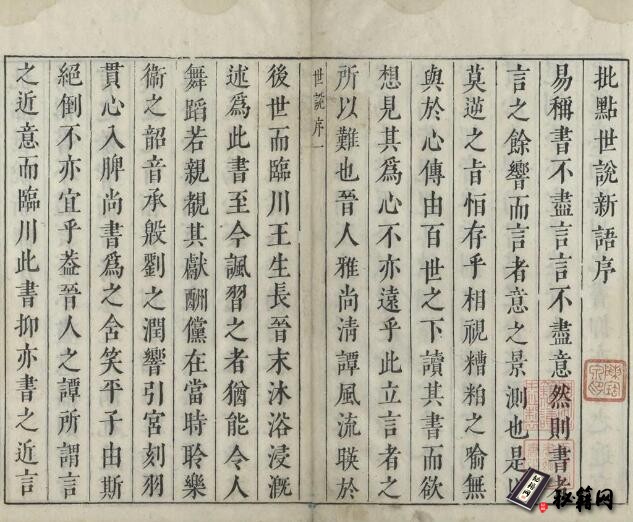 批點世說新語序
易稱書不盡言言不盡意然則書者
言之餘響而言者意之景測也是以
莫逆之旨怕存乎相視糟粕之喻無
與於心傳由百世之下讀其書而欲
想見其爲心不亦遠乎此立言者之
所以難也晉人雅尚清譚風流暎於
世說序一
後世而臨川王生長晉末沐浴浸漑
述爲此書至今諷習之者猶能令人
舞蹈若親覩其獻酬儻在當時聆樂
衞之韶音承殷劉之潤響引宮刻羽
貫心入脾尚書爲之含笑平子由斯
絕倒不亦宜乎葢晉人之譚所謂言
之近意而臨川此書抑亦書之近言
秘籍网